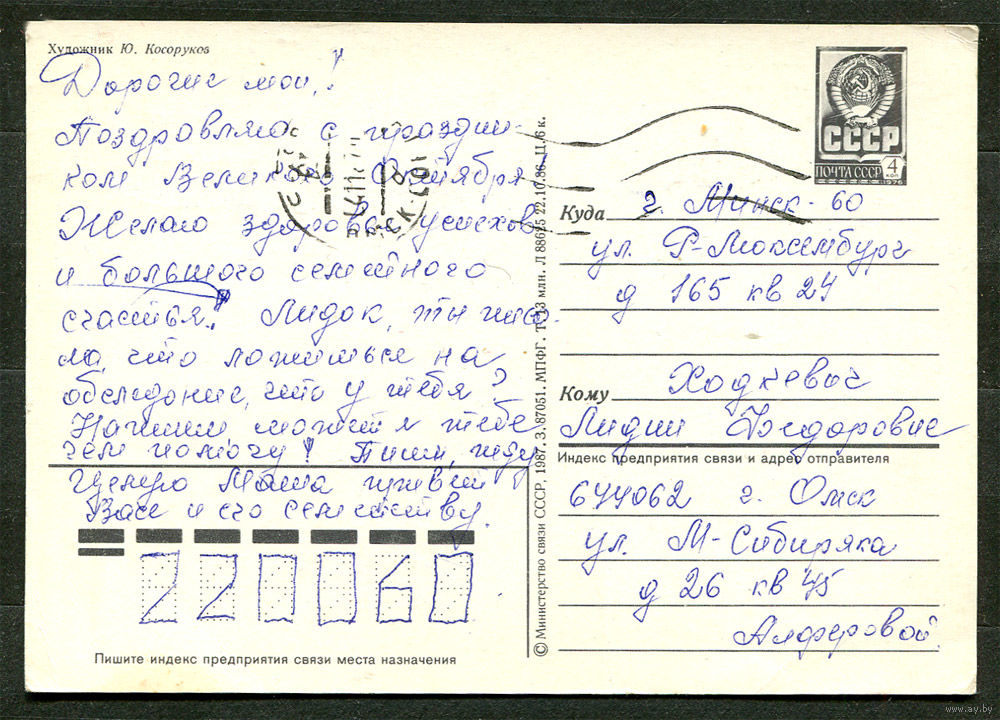 Художник Ю. Косоруков
Дорогие мои!
Поздравляю с праздни-
ком Великого Октября
Желаю здоровья успехов
и большого семейного
счастья! Лидок, ты писа-
ла, что ложишься на
обследование, что у тебя?
Напиши, может я тебе
чем помогу! Пиши, жду
Целую Маша привет
Васе и его семейству.
220060
Пишите индекс предприятия связи места назначения
© Министерство связи СССР, 1987. З. 87051. МПФГ. Т. 13 млн. Л 88625 22.10.86. Ц. 6 к.
СССР
ПОЧТА СССР 4 коп
1976
Куда г. Минск-60
ул. Р-Люксембург
д 165 кв 24
Кому Ходкевич
Лидии Фёдоровне
Индекс предприятия связи и адрес отправителя
644062 г. Омск
ул. М-Сибиряка
д 26 кв 45
Алферовой
www.ay.by